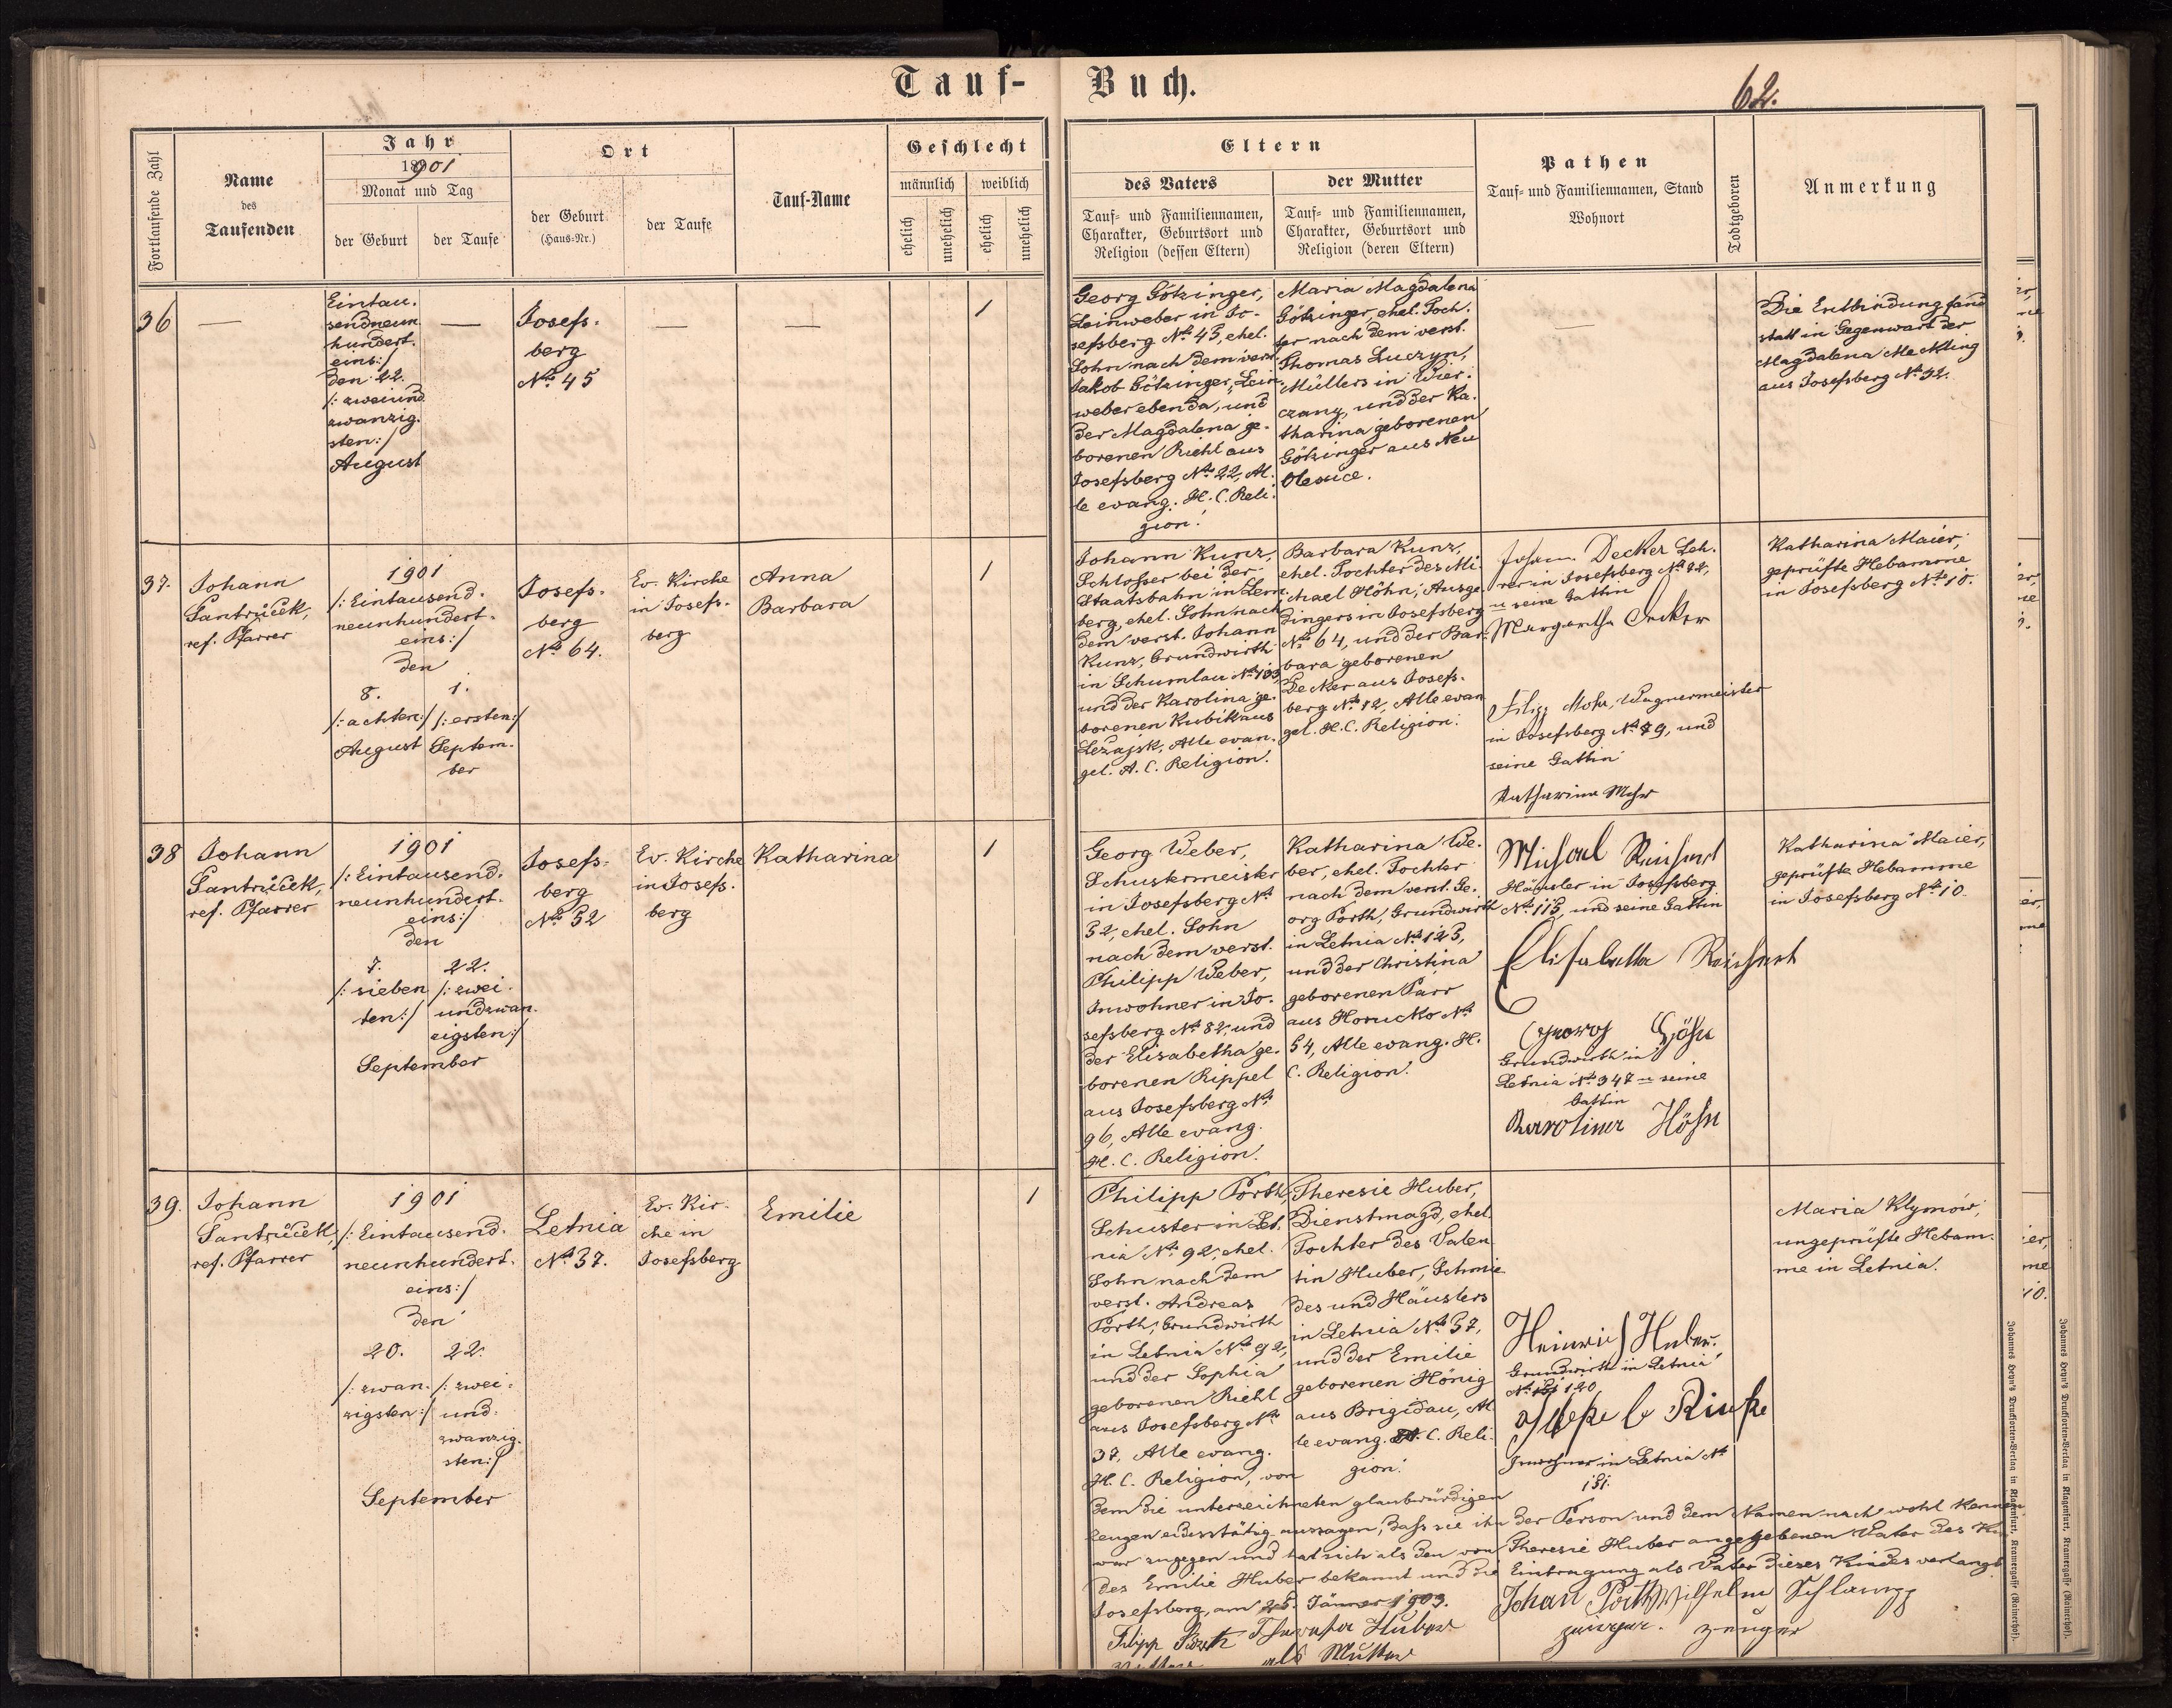 Tauf-Buch.
62.
Fortlaufende Zahl
Name
des
Taufenden
Jahr
1901
Monat und Tag
der Geburt
der Taufe
Ort
der Geburt
(Haus-Nr.)
der Taufe
Tauf-Name
Geschlecht
männlich
weiblich
ehelich
unehelich
ehelich
unehelich
Eltern
des Vaters
Tauf- und Familiennamen,
Charakter, Geburtsort und
Religion (dessen Eltern)
der Mutter
Tauf- und Familiennamen,
Charakter, Geburtsort und
Religion (deren Eltern)
Pathen
Tauf- und Familiennamen, Stand
Wohnort
Todtgeboren
Anmerkung
36
—
Eintau-
sendneun
hundert-
eins:/
den 22.
/: zweiund
zwanzig-
sten:/
August
—
Josefs-
berg
No 45
—
—
1
Georg Götzinger,
Leinweber in Jo-
sefsberg No 45, ehel.
Sohn nach dem verst.
Jakob Götzinger, Lein-
weber ebenda, und
der Magdalena ge-
borenen Riehl aus
Josefsberg No 22, Al-
le evang. H. C. Reli-
gion.
Maria Magdalena
Götzinger, ehel. Toch-
ter nach dem verst.
Thomas Luczyn,
Müllers in Wier-
czany, und der Ka-
tharina geborenen
Götzinger aus Neu
Olexice.
—
Die Entbindung fand
statt in Gegenwart der
Magdalena Meckling
aus Josefsberg No 32.
37.
Johann
Jantrůček,
ref. Pfarrer
1901
/: Eintausend-
neunhundert-
eins:/
den
8.
/: achten:/
August
1.
/: ersten:/
Septem-
ber
Josefs-
berg
No 64.
Ev. Kirche
in Josefs-
berg
Anna
Barbara
1
Johann Kunz,
Schlosser bei der
Staatsbahn in Lem-
berg, ehel. Sohn nach
dem verst. Johann
Kunz, Grundwirth
in Schumlau No 103,
und der Karolina ge-
borenen Kubik aus
Leżajsk, Alle evan-
gel. A. C. Religion.
Barbara Kunz,
ehel. Tochter des Mi-
chael Höhn, Ausge-
dingers in Josefsberg
No 64, und der Bar-
bara geborenen
Decker aus Josefs-
berg No 12, Alle evan
gel. H. C. Religion.
Johann Decker Leh-
rer in Josefsberg No 22,
u seine Gattin
Margaretha Decker
Filipp Mohr, Wagnermeister
in Josefsberg No 79, und
seine Gattin
Katharina Mohr
Katharina Maier,
geprüfte Hebamme
in Josefsberg No 10.
38
Johann
Jantrůček,
ref. Pfarrer
1901
/: Eintausend-
neunhundert-
eins:/
den
7.
/: sieben
ten:/
22.
/: zwei-
undzwan-
zigsten:/
September
Josefs-
berg
No 52
Ev. Kirche
in Josefs-
berg
Katharina
1
Georg Weber,
Schustermeister
in Josefsberg No
52, ehel. Sohn
nach dem verst.
Philipp Weber,
Inwohner in Jo-
sefsberg No 82, und
der Elisabetha ge-
borenen Rippel
aus Josefsberg No
96, Alle evang.
H. C. Religion.
Katharina We-
ber, ehel. Tochter
nach dem verst. Ge-
org Porth, Grundwirth
in Letnia No 123,
und der Christina
geborenen Parr
aus Horucko No
54, Alle evang. H.
C. Religion.
Michael Reichert
Häusler in Josefsberg
No 115, und seine Gattin
Elisabetha Reichert
Georg Höhn
Grundwirth in
Letnia No 347 u seine
Gattin
Karolina Höhn
Katharina Maier,
geprüfte Hebamme
in Josefsberg No 10.
39.
Johann
Jantrůček,
ref. Pfarrer
1901
/: Eintausend-
neunhundert-
eins:/
den
20.
/: zwan-
zigsten:/
22.
/: zwei-
und-
zwanzig-
sten:/
September
Letnia
No 37.
Ev. Kir-
che in
Josefsberg
Emilie
1
Philipp Porth,
Schuster in Let-
nia No 92, ehel.
Sohn nach dem
verst. Andreas
Porth, Grundwirth
in Letnia No 92,
und der Sophia
geborenen Riehl
aus Josefsberg No
37, Alle evang.
H. C. Religion, von
Theresie Huber,
Dienstmagd, ehel.
Tochter des Valen
tin Huber, Schmie
des und Häuslers
in Letnia No 37,
und der Emilie
geborenen Hönig
aus Brigidau, Al
le evang. A. C. Reli-
gion.
Heinrich Huber.
Grundwirth in Letnia
No 120
Inwohner in Letnia No
151.
Maria Klymów,
ungeprüfte Hebam-
me in Letnia.
dem die unterzeichneten glaubwürdigen
Zeugen eidesstätig aussagen, dass sie ihn der Person und dem Namen nach wohl kennen
war zugegen und hat sich als den von Theresie Huber angegebenen Vater des Kin
des Emilie Huber bekannt und die Eintragung als Vater dieses Kindes verlangt.
Josefsberg, am 25. Jänner 1903.
Filipp Porth
Theresia Huber
als Mutter
Johan Porth
zeuge.
Wilhelm Schlamp
zeuge
Johannes Heyn's Drucksorten-Verlag in Klagenfurt, Kramergasse (Rainerhof).
Johannes Heyn's Drucksorten-Verlag in Klagenfurt, Kramergasse (Rainerhof).